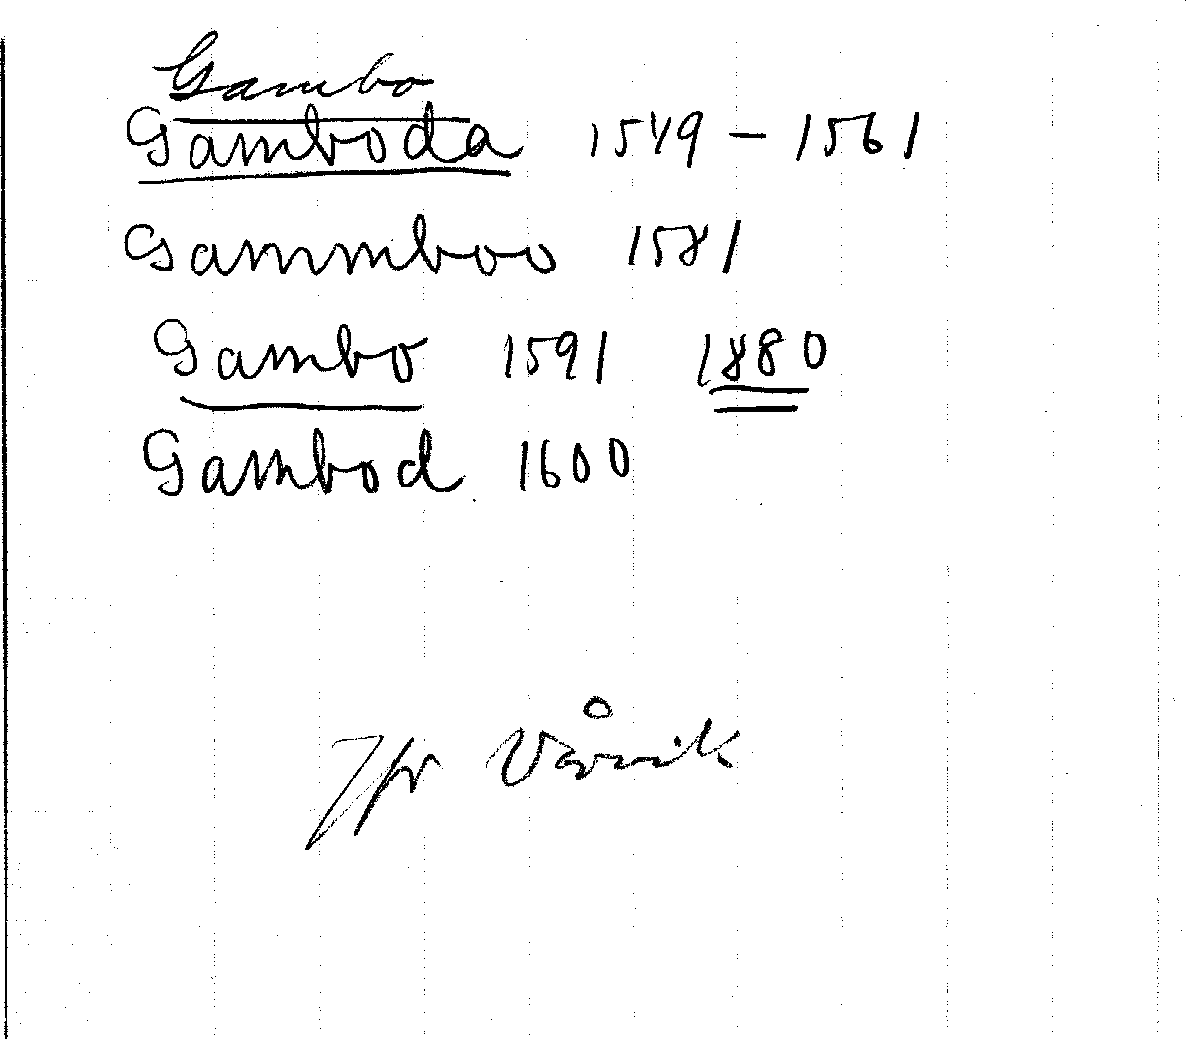 Gambo
Gamboda 1549 - 1561
Gammboo 1581
Gambo 1591 1880
Gambod 1600
Jfr Vårvik